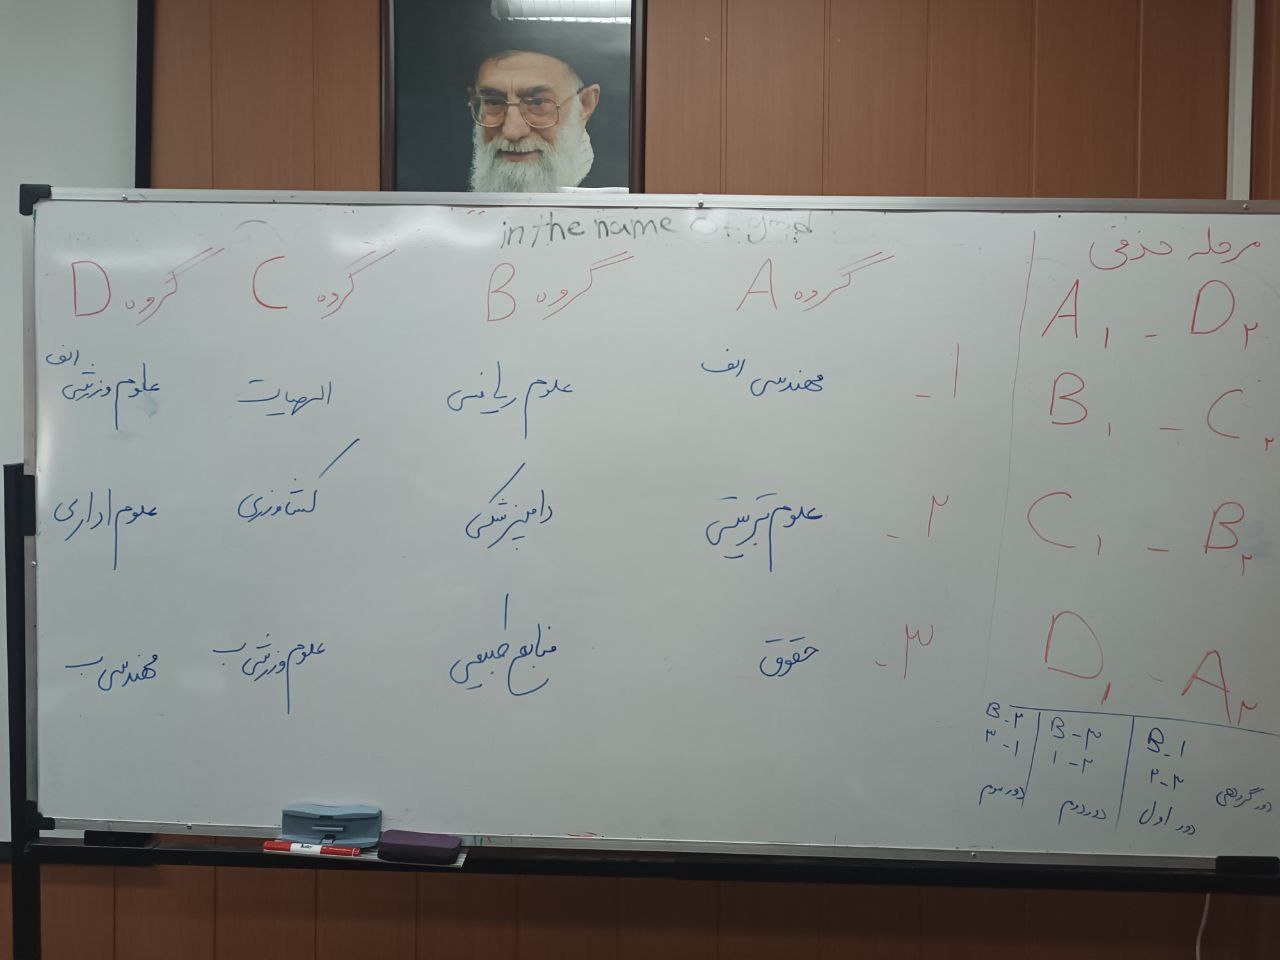 in the name of god
گروه A گروه B گروه C گروه D
۱ - مهندسی الف علوم ریاضی الهیات علوم ورزشی الف
۲ - علوم تربیتی دامپزشکی کشاورزی علوم اداری
۳ - حقوق منابع طبیعی علوم ورزشی ب مهندسی ب
مرحله حذفی
A۱ - D۲
B۱ - C۲
C۱ - B۲
D۱ - A۲
دور گروهی
B - ۱
۲ - ۳
دور اول
B - ۳
۱ - ۲
دور دوم
B - ۲
۳ - ۱
دور سوم